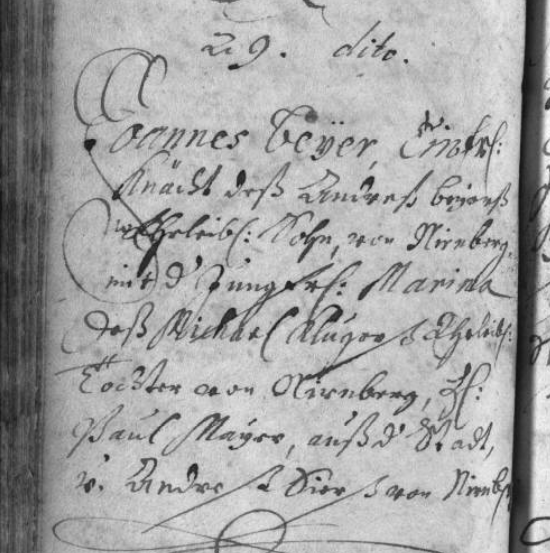 29. dito.
Joannes Beÿer,
Knächt deß Andreß beÿerß
Eheleibl: Sohn, von Nirnberg,
mit d' Jungfrl: Marina
deß Michael Eheleibl:
Tochter von Nirnberg,
Paul Mayer, auß d' Stadt,
v. Andreß von Nirnb